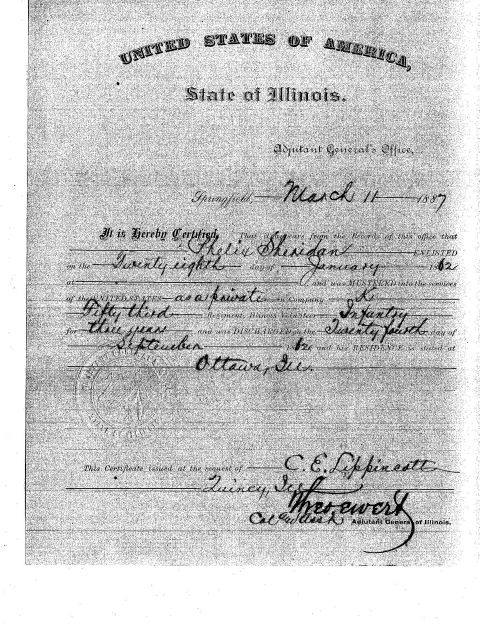 UNITED STATES OF AMERICA,
State of Illinois.
Adjutant General's Office,
Springfield, March 11 1887
It is Hereby Certified, That it appears from the Records of this office that
Phelix Sheridan ENLISTED
on the Twenty eighth day of January 1862
at and was MUSTERED into the services
of the UNITED STATES as a private in Company K
Fifty third Regiment, Illinois Volunteer Infantry
for three years and was DISCHARGED on the Twenty fourth day of
September 1862 and his RESIDENCE is stated at
Ottawa, Ill.
This Certificate issued at the request of C. E. Lippincott
Quincy, Ill
Adjutant General of Illinois.